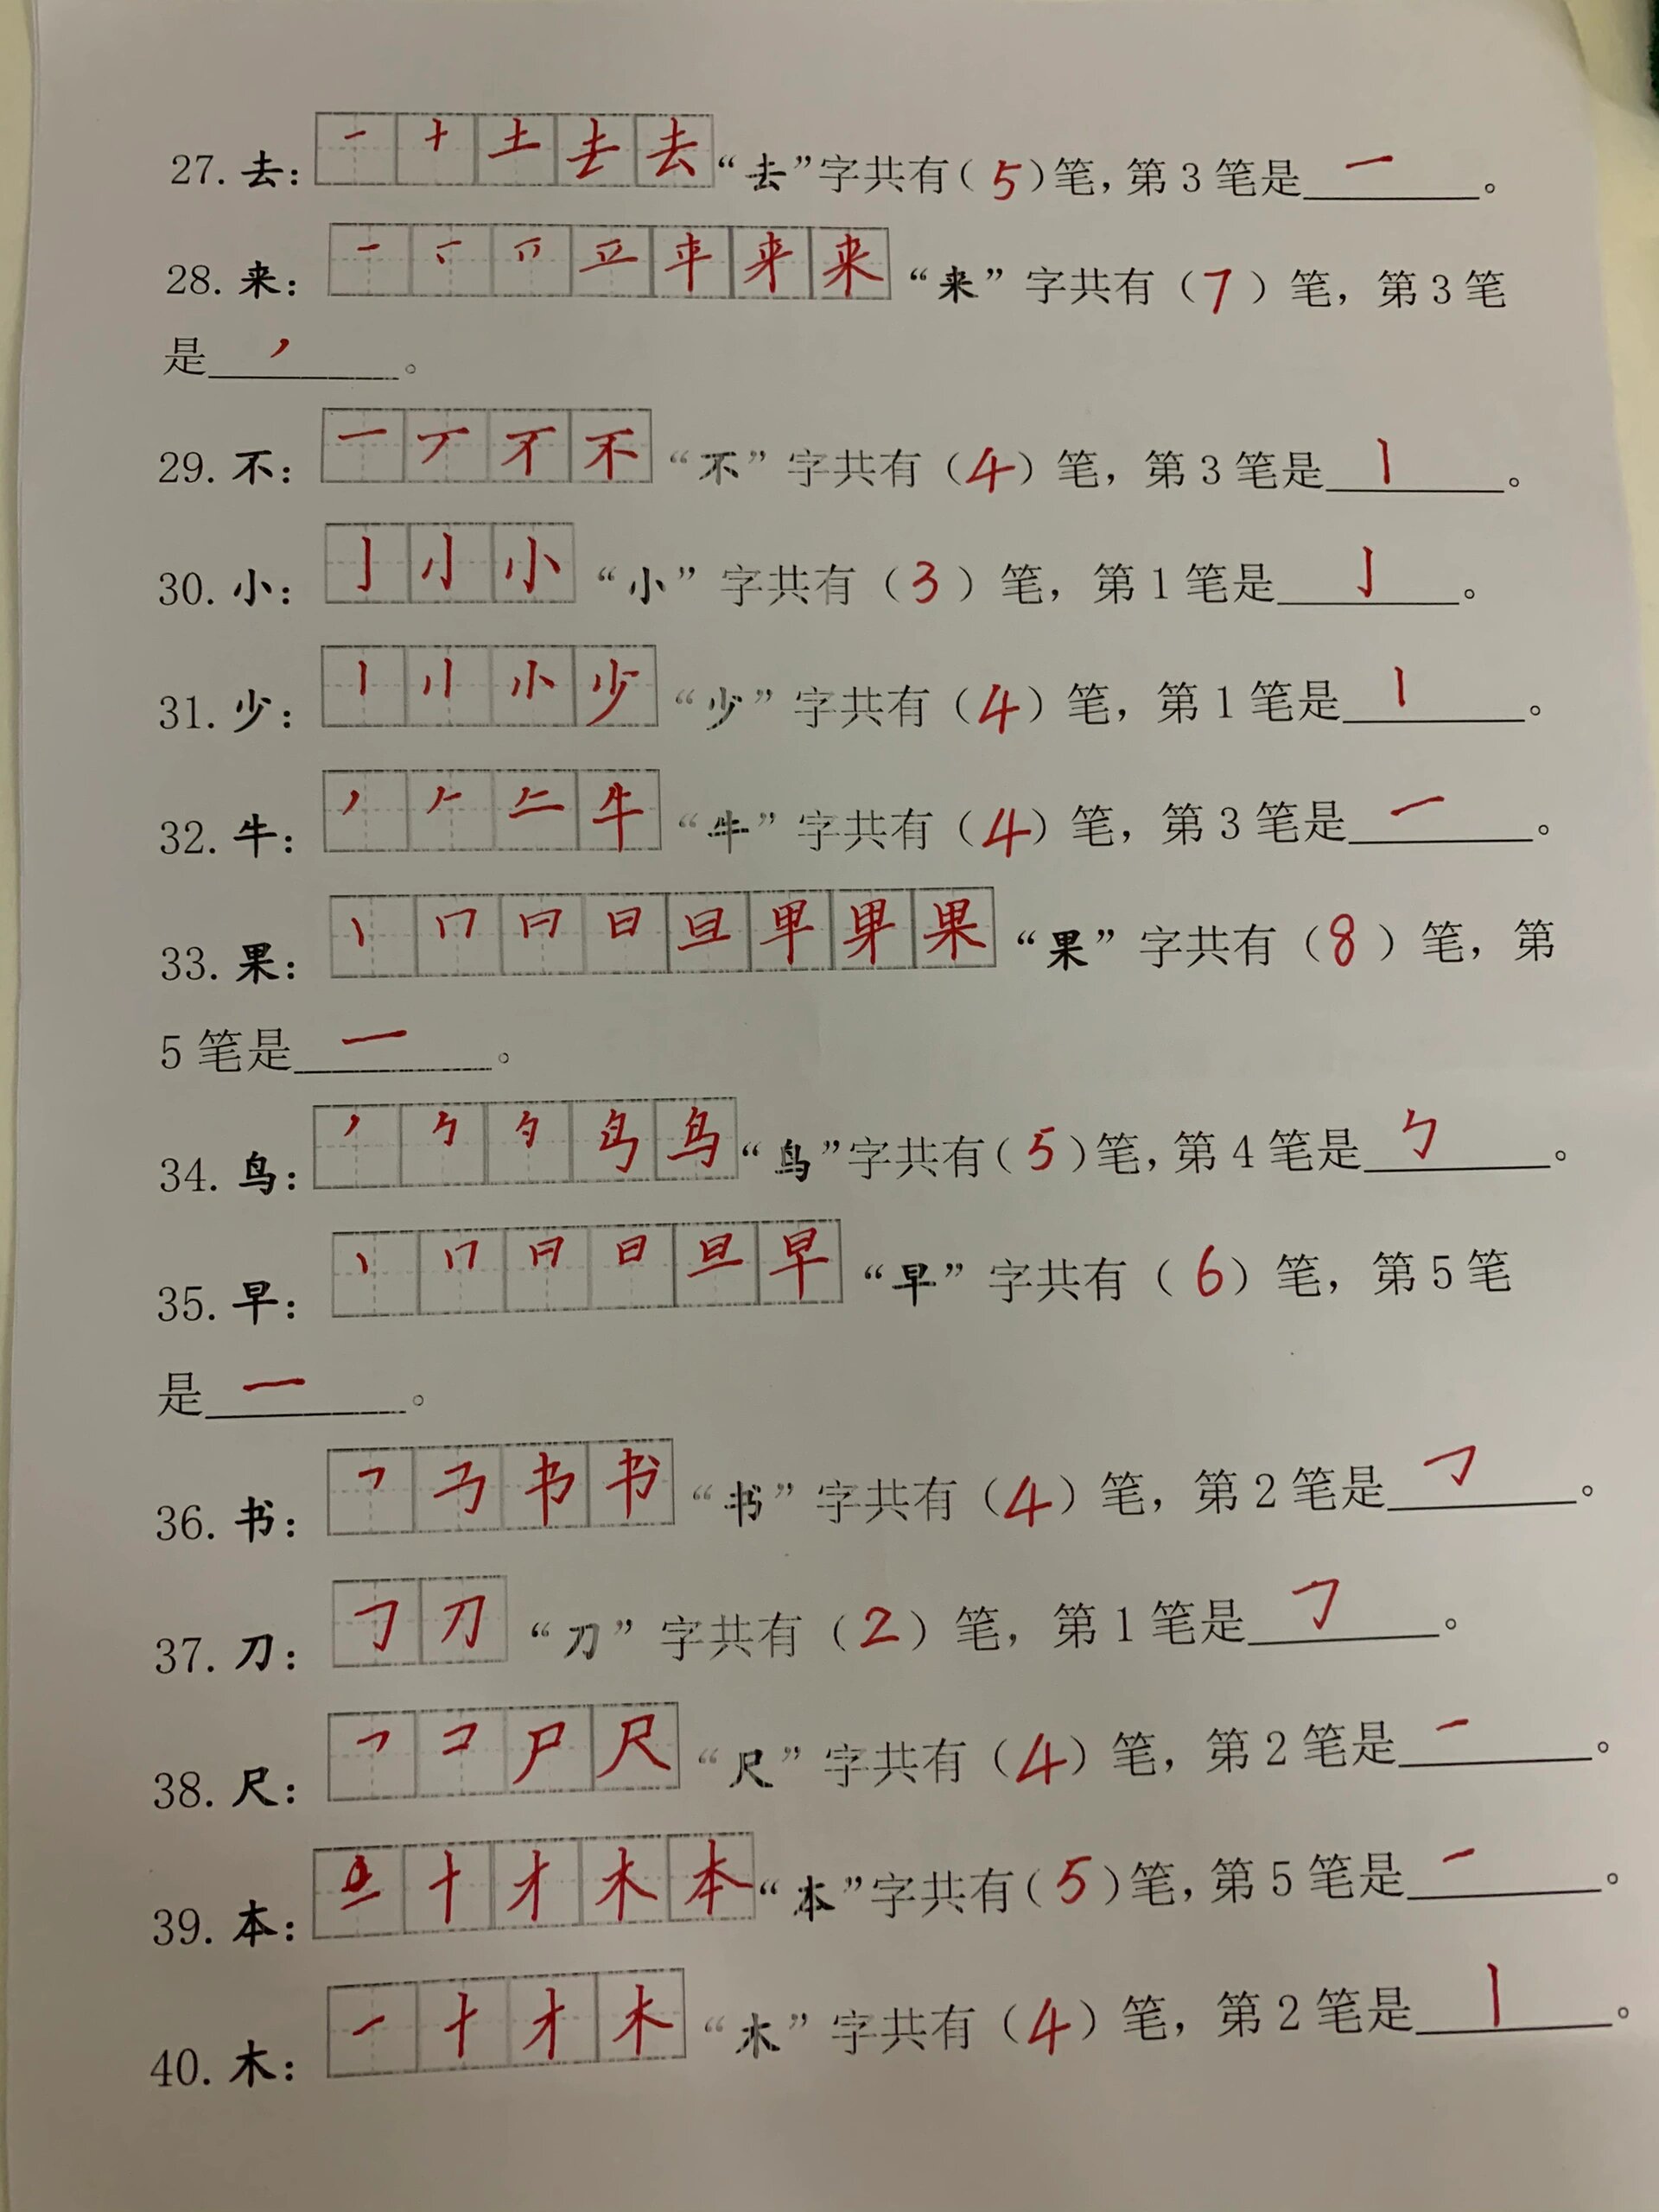 27. 去： 一 十 土 去 去 “去”字共有（5）笔，第 3 笔是 一 。
28. 来： 一 平 来 来 “来”字共有（7）笔，第 3 笔
是 ㇒ 。
29. 不： 一 丆 不 不 “不”字共有（4）笔，第 3 笔是 丨 。
30. 小： 亅 小 “小”字共有（3）笔，第 1 笔是 亅 。
31. 少： 丨 小 少 “少”字共有（4）笔，第 1 笔是 丨 。
32. 牛： 丿 𠂉 牛 “牛”字共有（4）笔，第 3 笔是 一 。
33. 果： 丨 冂 日 日 旦 甲 果 果 “果”字共有（8）笔，第
5 笔是 一 。
34. 鸟： 丿 勹 鸟 鸟 “鸟”字共有（5）笔，第 4 笔是 ㄣ 。
35. 早： 丨 冂 日 日 旦 早 “早”字共有（6）笔，第 5 笔
是 一 。
36. 书： ㇕ 书 书 “书”字共有（4）笔，第 2 笔是 ㇆ 。
37. 刀： ㇆ 刀 “刀”字共有（2）笔，第 1 笔是 ㇆ 。
38. 尺： ㇕ コ 尸 尺 “尺”字共有（4）笔，第 2 笔是 一 。
39. 本： 十 才 木 本 “本”字共有（5）笔，第 5 笔是 一 。
40. 木： 一 十 才 木 “木”字共有（4）笔，第 2 笔是 丨 。